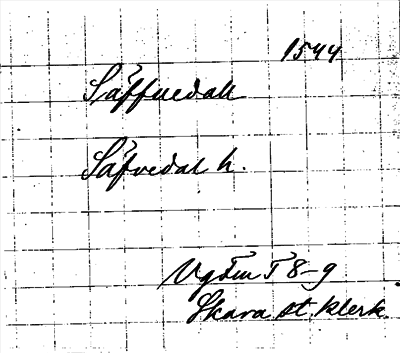 1544
Säffuedall
Säfvedal h.
Vg Fm T 8-9
Skara st. klerk.